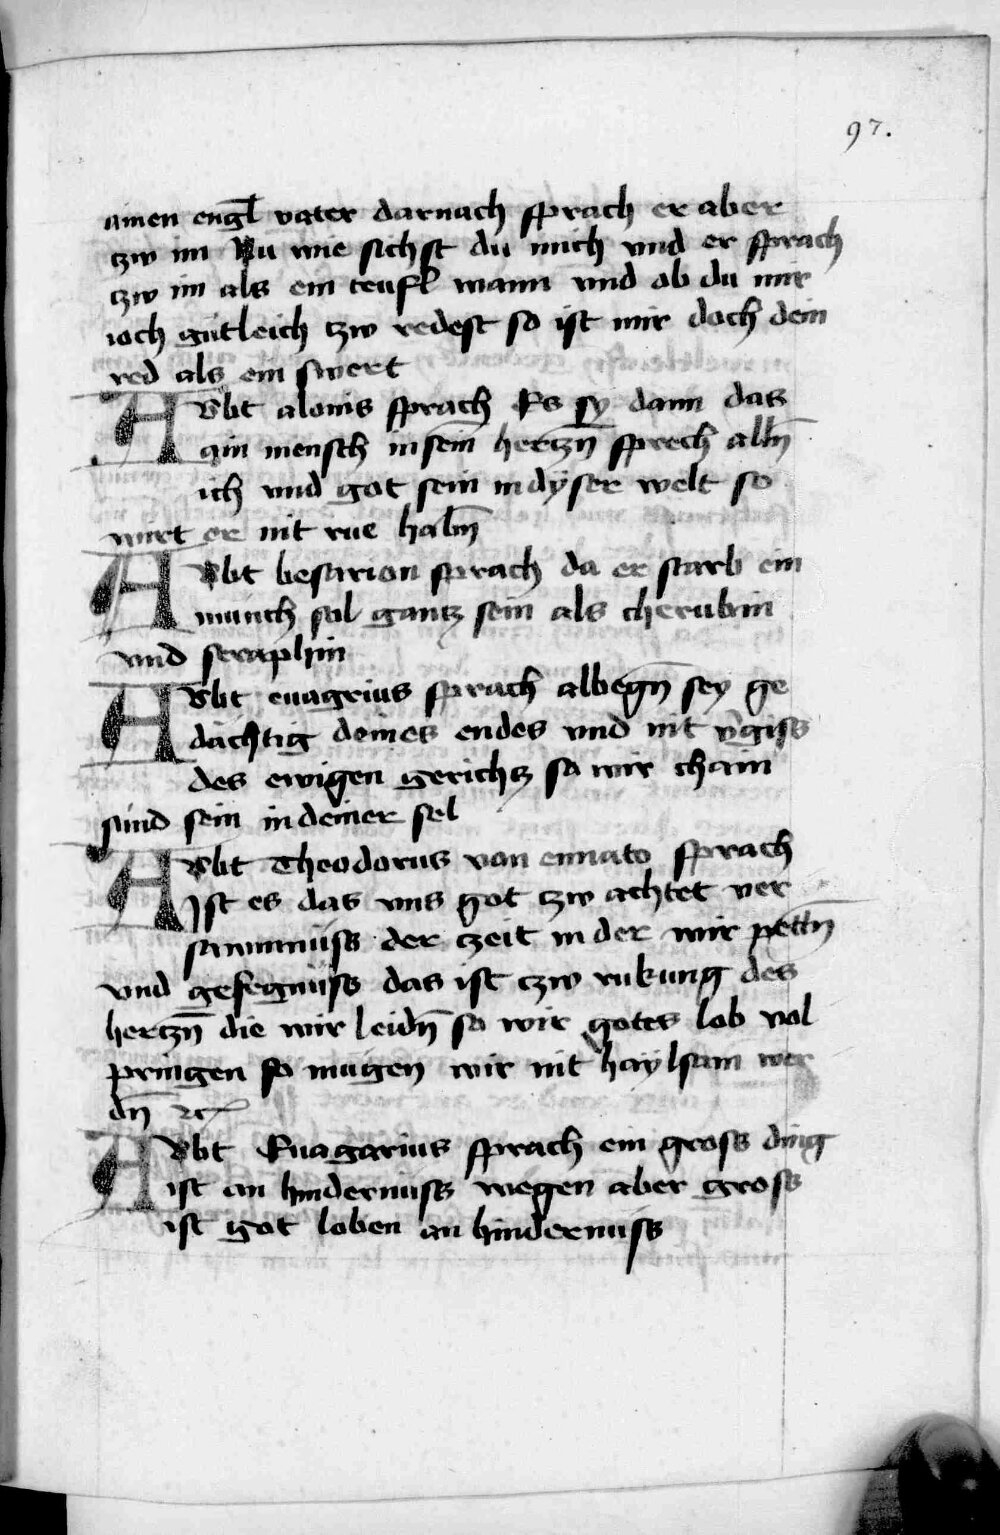 97.
ainen engl vater darnach sprach er aber
tzw im Nu wie sichst du mich vnd er sprach
tzw im als ein teufl wann vnd ob du mir
ioch gütleich tzw redest so ist mir doch dein
red als ein swert
Abbt alonis sprach Es sy dann das
ain mensch in sein̄ hertzn̄ sprech alln̄
ich vnd got sein in dyser welt so
wirt er nit rue habn̄
Abbt besarion sprach da er starb ein
münch sol gantz sein als cherubin
vnd seraphin
Abbt euagrius sprach albegn̄ sey ge
dächtig deines endes vnd nit v̄giss
des ewigen gerichtz so wir chain
sünd sein in deiner sel
Abbt Theodorus von ennato sprach
Ist es das vns got tzw achtet ver
sawmnüss der tzeit in der wir pettn̄
vnd gesegnüss das ist tzw rukung des
hertzn̄ die wir leidn̄ so wir gotes lob vol
pringen so mügen wir nit haylsam wer
dn̄ ⁊c
Abbt Euagarius sprach ein gross ding
ist an hindernüss wegen aber gross
ist got loben an hindernüss